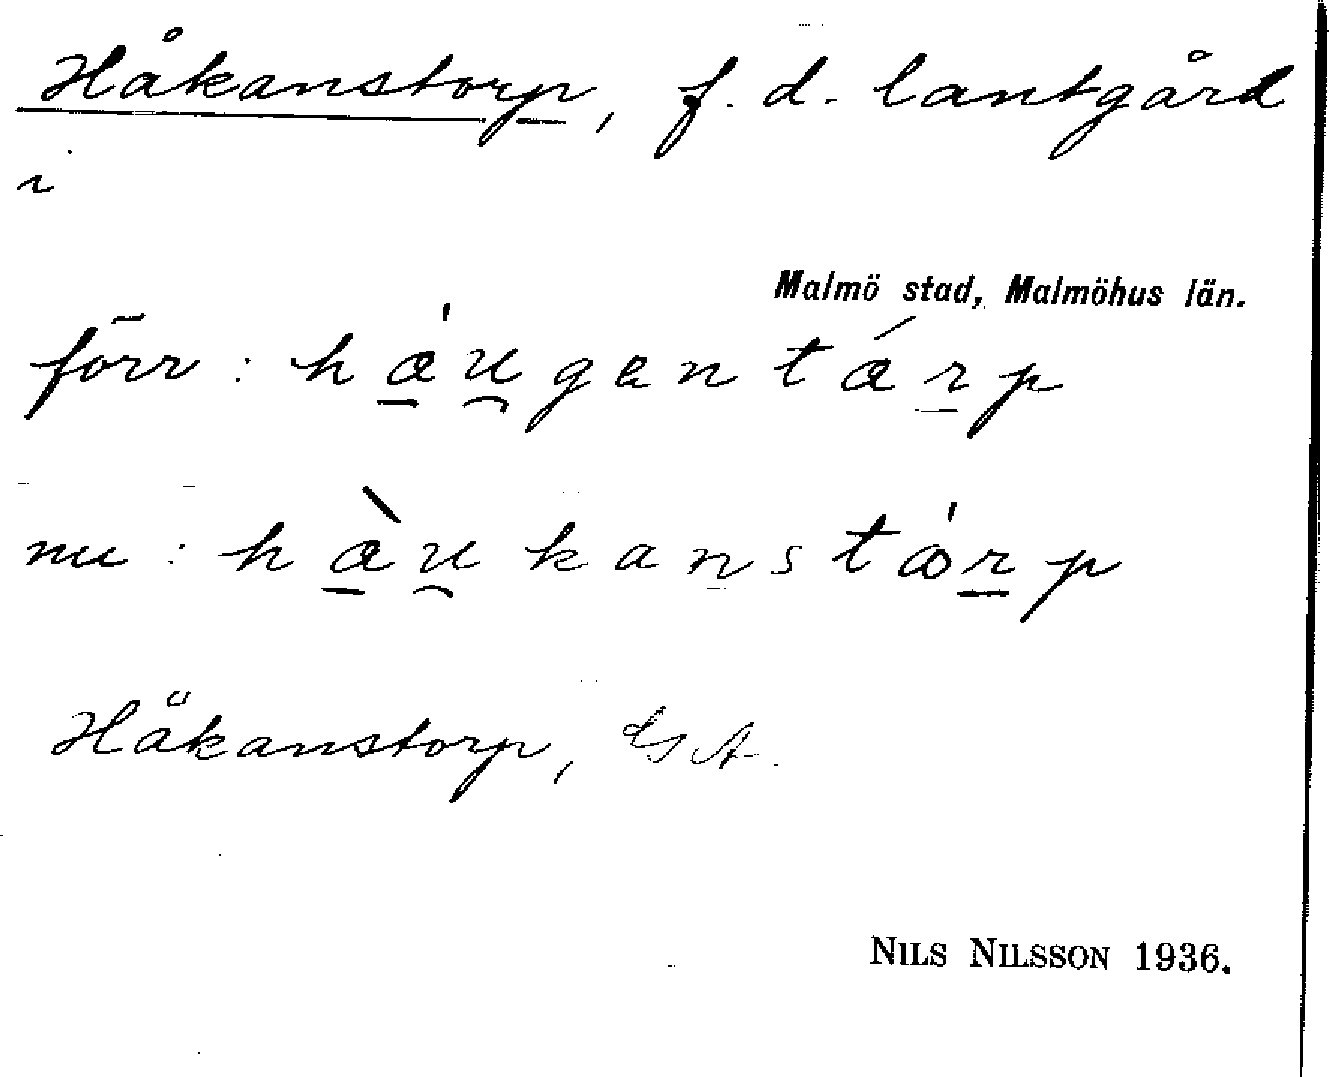 Håkanstorp, f. d. lantgård
i
Malmö stad, Malmöhus län.
förr : hǽu̯gentárp
nu : hæ̀u̯kanstǻrp
Håkanstorp,
NILS NILSSON 1936.